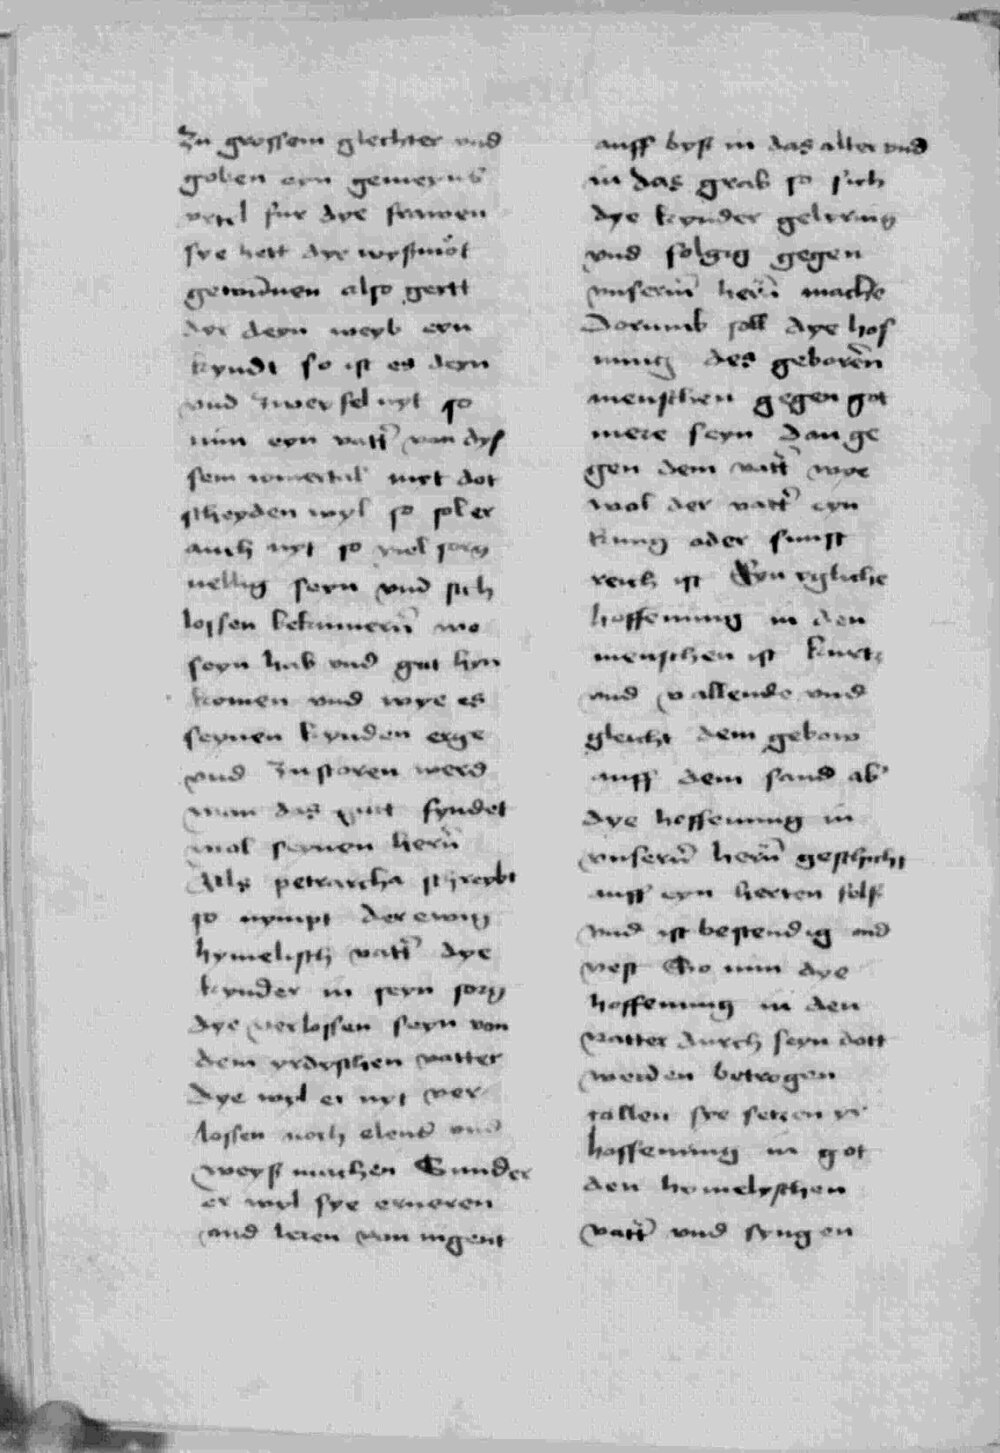 Zu grossem glechter vnd
goben eyn gemeyns
vrtel fur dye frawen
sye hett dye
gewunnen also gertt
dyr deyn weyb eyn
kyndt so ist es deyn
vnd zweyfel nyt so
nun eyn vatter von dys
sem iomertal nyt dot
scheyden wyl so sol er
auch nyt so viel sorg
uellig seyn vnd sich
lossen bekumern wo
seyn hab vnd gut hyn
komen vnd wye es
seynen kynden erge
vnd zustoren werd
wan das gutt fyndet
wol seynen hern
Als petrarcha schreybt
so nympt der ewig
hymelisch vatter dye
kynder in seyn sorg
dye verlossen seyn von
dem yrdyschen vatter
dye wyl er nyt ver
lossen noch elent vnd
weyß machen Sunder
er wyl sye erneren
vnd leren von iugent
auff byß in das alter vnd
in das grab so sich
dye kynder gelyrnig
vnd folgig gegen
vnserm hern mache
Dorumb soll dye hof
nung des geboren
menschen gegen got
mere seyn dan ge
gen dem vatter wye
wol der vatter eyn
kung oder sunst
reich ist Eyn ygliche
hoffenung in den
menschen ist kurtz
vnd vallende vnd
gleicht dem gebow
auff dem sand ab
dye hoffenung in
vnsern hern geschicht
auff eyn herten fels
vnd ist bestendig vnd
vest So nun dye
hoffenung in den
vatter durch seyn dott
werden betrogen
sollen sye setzen yr
hoffenung in got
den hymelyschen
vatter vnd syngen